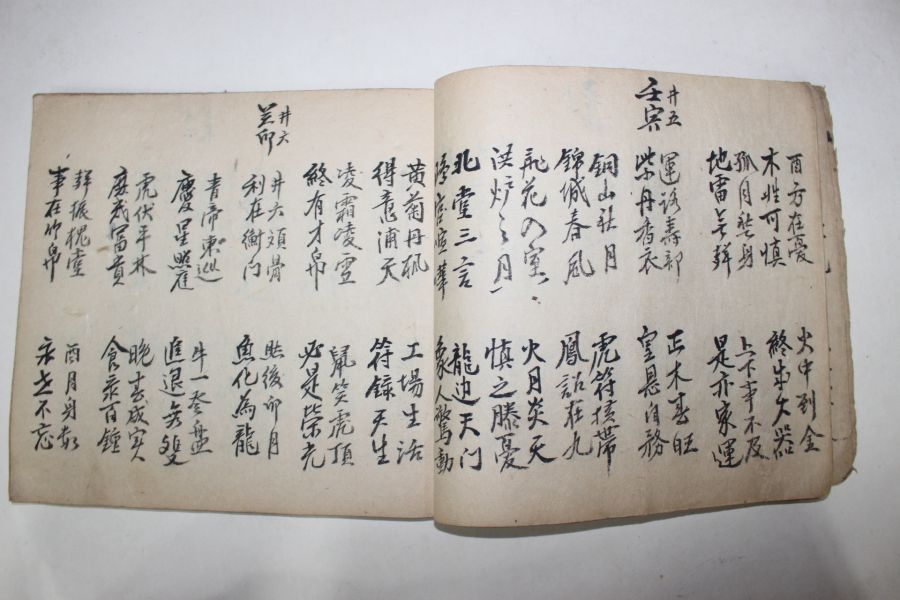 酉方在憂 火中到金
木姓可慎 終成大器
孤月照身 上下事不及
地雷無聲 是亦家運
廿五
壬寅
運路壽部 正木春旺
紫丹香衣 皇恩自務
銅山秋月 虎符横帶
錦城春風 鳳詔在九
飛花入室 火月炎天
洪炉之月 慎之勝憂
北堂三言 龍迎天门
人驚動
黃菊丹 工場生活
得意浦天 符籙天生
凌霜凌雪 鼠笑虎頂
終有才帛 必是榮光
廿六
卯
廿六頭骨 然後卯月
利在衡门 魚化為龍
青帝東巡 牛一登盤
慶星照 進退無
虎伏平林 晚春成实
富貴 食祿百鍾
聲振槐堂 酉月身數
事在竹帛 永世不忘